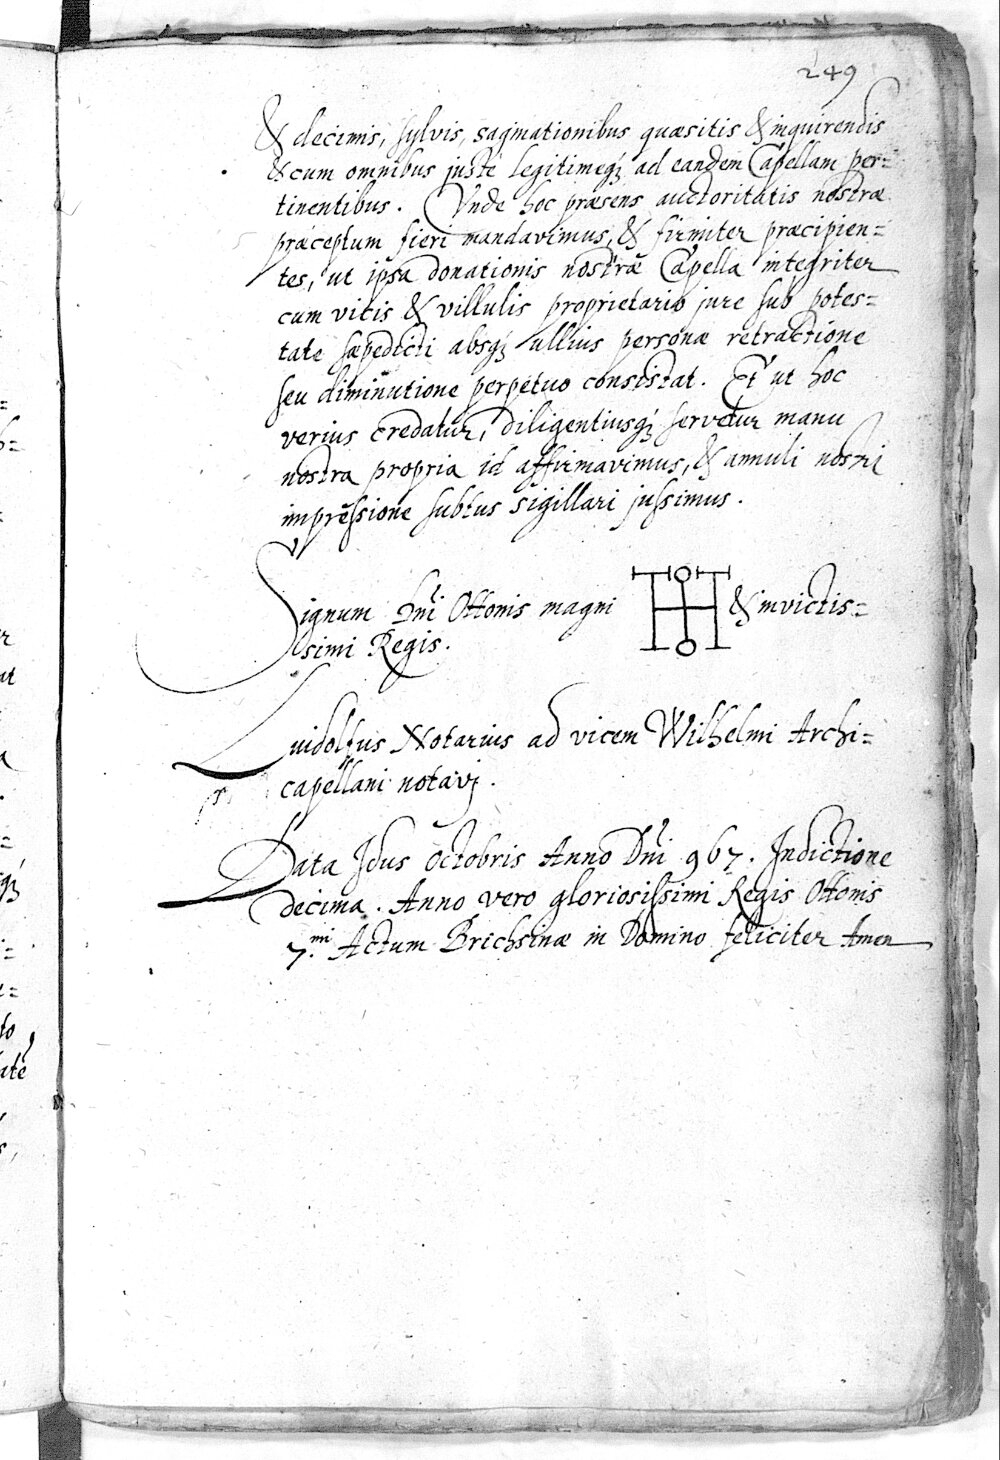 249
& decimis, sylvis, saginationibus quæsitis & inquirendis
& cum omnibus justè legitimeq́; ad eandem Capellam per=
tinentibus. Vnde hoc præsens auctoritatis nostræ
præceptum fieri mandavimus, & firmiter præcipien=
tes, ut ipsa donationis nostræ Capella integriter
cum vicis & villulis proprietario jure sub potes=
tate sæpedicti absq́; ullius personæ retractione
seu diminutione perpetuo consistat. Et ut hoc
verius credatur, diligentiusq́; servetur manu
nostra propria id affirmavimus, & annuli nostri
impressione subtus sigillari jussimus.
Signum Dn̄i Ottonis magni & invictis=
simi Regis.
Luidolfus Notarius ad vicem Wilhelmi Archi=
capellani notavj.
Data Idus Octobris Anno Dn̄i 967. Indictione
decima. Anno vero gloriosissimi Regis Ottonis
7.mi Actum Brichsinæ in Domino feliciter Amen